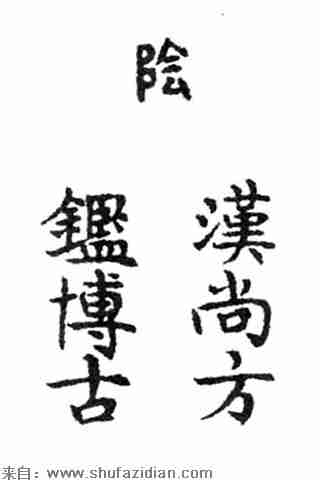 陰
漢尚方
鑑博古
来自：www.shufazidian.com